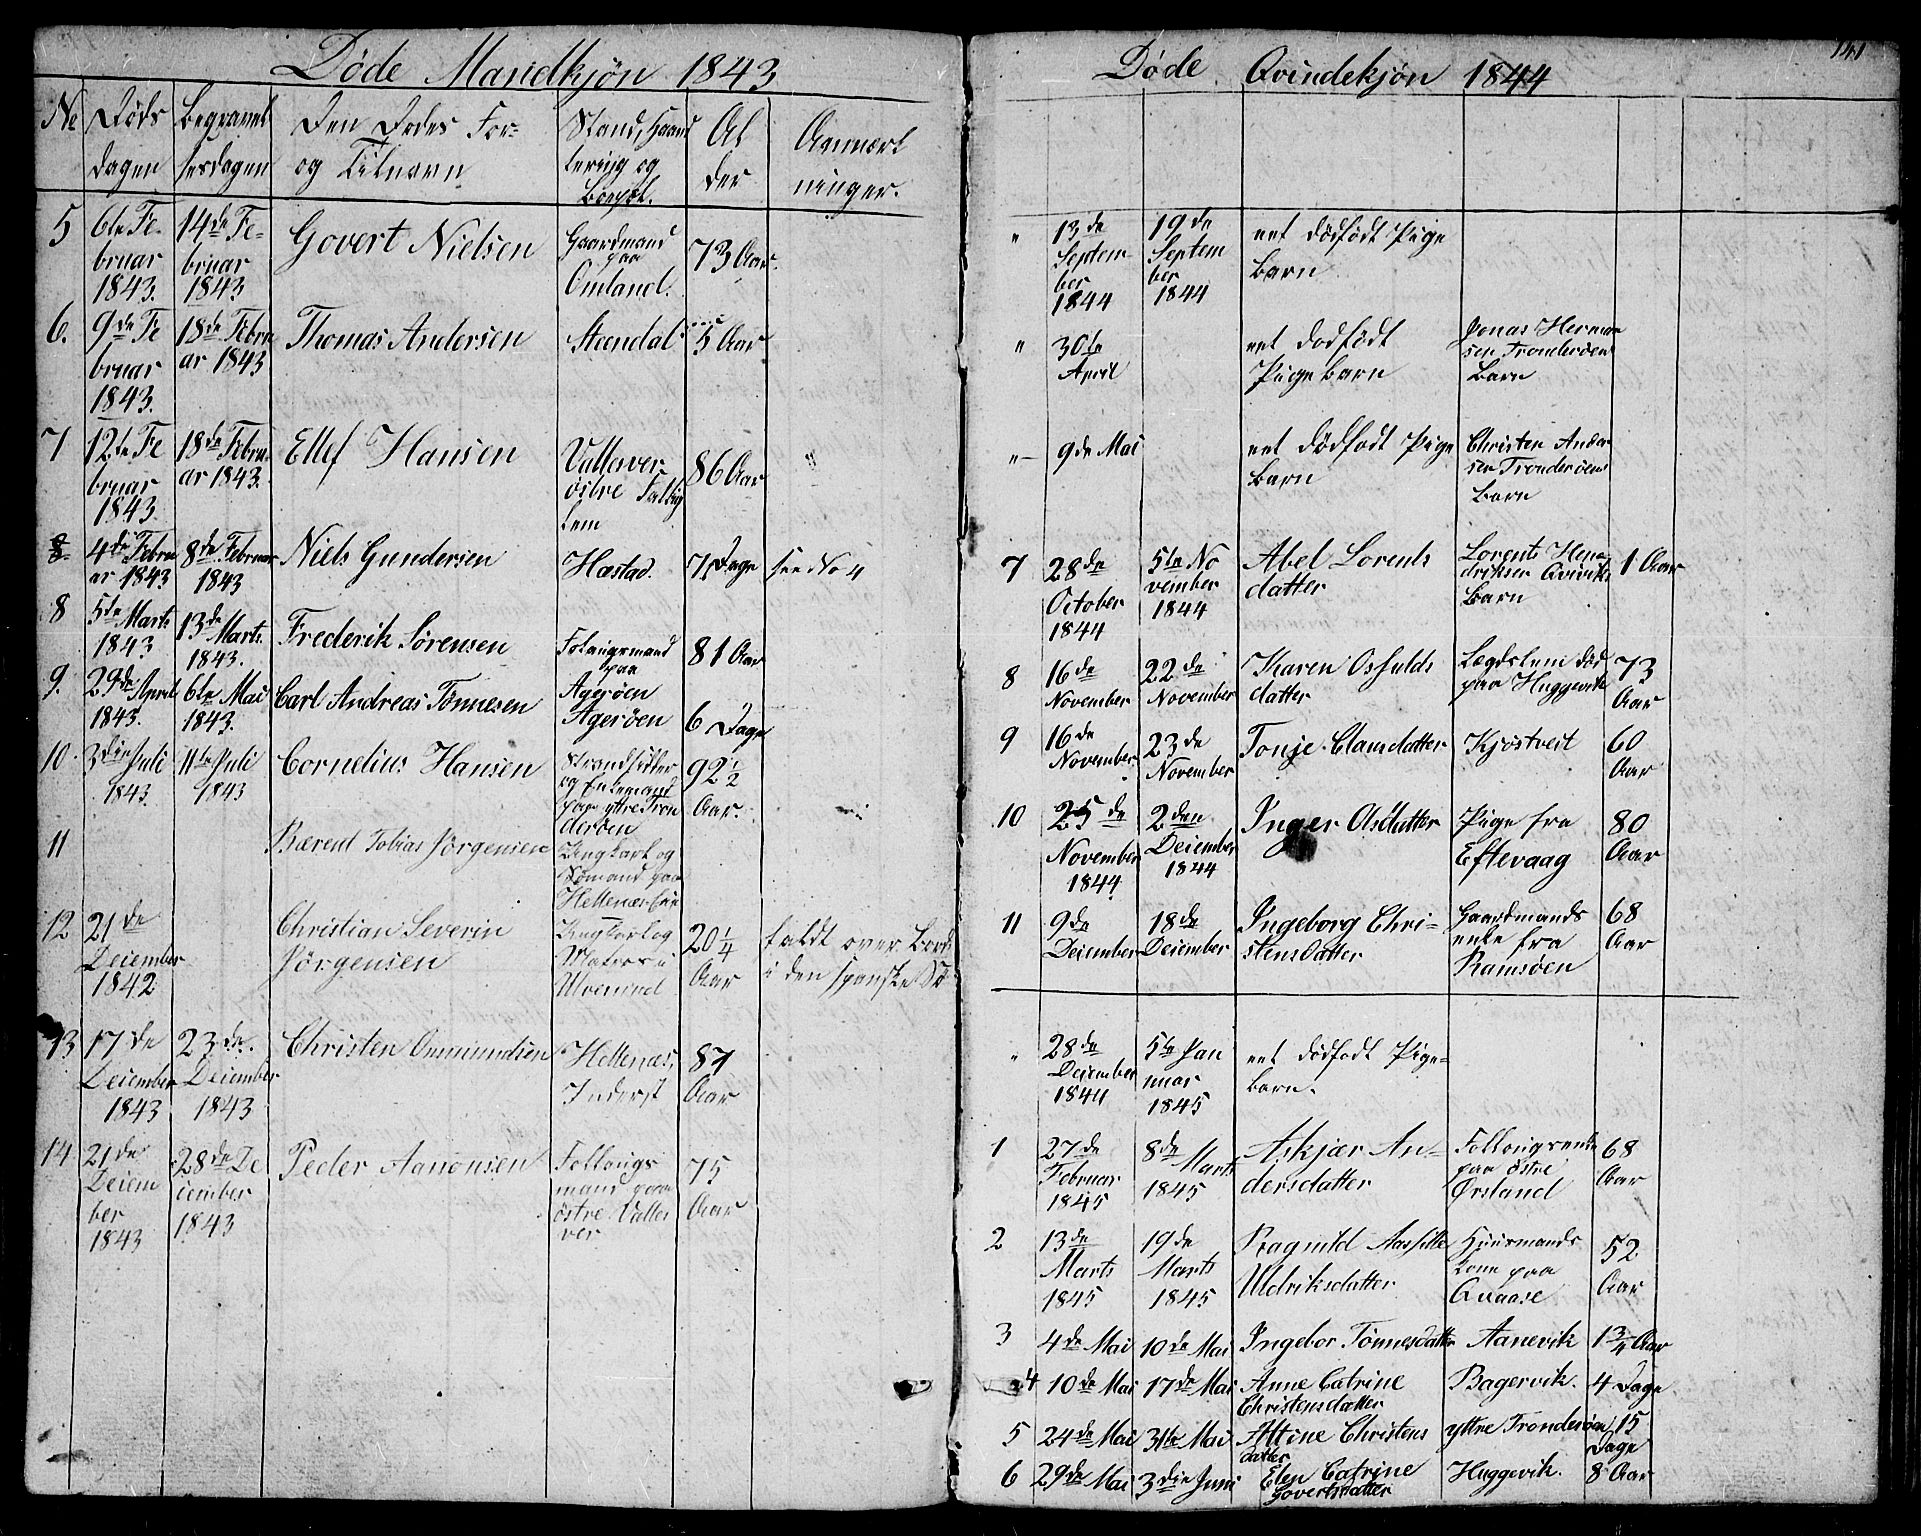 Døde Mandkjøn 1843
No
Døds
dagen
Begravel
sesdagen
Den Dødes For-
og Tilnavn
Stand, Haand
tering og
Bopæl.
Al
der
Anmærk
ninger.
5
6te Fe-
bruar
1843.
14de Fe-
bruar
1843
Govert Nielsen
Gaardmand
paa
Omland.
73 Aar.
6.
9de Fe
bruar
1843.
18de Febru
ar 1843
Thomas Andersen
Steendal
5 Aar
7
12te Fe
bruar
1843.
18de Febru
ar 1843.
Ellef Hansen
Vallever
østre Fattig
lem
86 Aar
"
8
4de Febru
ar 1843
8de Februar
1843
Niels Gundersen
Hæstad.
7 Dage
see No 4
8
5te Marts
1843
13de Marts
1843.
Frederik Sørensen
Folaugsmand
paa
Agerøen
81 Aar
9.
29de April
1843.
6te Mai
1843.
Carl Andreas Tønnesen
Agerøen
6 Dage
10.
3die Juli
1843.
11te Juli
1843
Cornelius Hansen
Strandsidder
og Enkemand
paa yttre Tron
derøen
92 1/2
Aar.
11
Bærent Tobias Jørgensen
Ungkarl og
Sømand paa
Hellenæs
12
21de
Deiember
1842
Christian Severin
Jørgensen
Ungkarl og
Matros i
Ulvesund
20 1/4
Aar
faldt over Bord
i den spanske Sø
13
17de
Deiember
1843
23de
Deiember
1843
Christen Omundsen
Hellenæs,
Inderst
87
Aar
14
21de
Deiem
ber
1843
28de De
iember
1843
Peder Aanonsen
Follaugs
mand paa
østre Valle
ver
75
Aar
141
Døde Qvindekjøn 1844
"
13de
Septem
ber
1844
19de
Septem
ber
1844
eet dødfødt Pige
barn
"
30te
April
eet dødfødt
Pigebarn
Jonas Herman
sen Tronderøens
Barn
"
9de Mai
eet dødfødt Pige
barn
Christen Ander
sen Tronderøens
Barn
7
28de
October
1844
5te No
vember
1844
Abel Lorents
datter
Lorents Hen
driksen Qviviks
Barn
1 Aar
8
16de
November
22de
November
Karen Osfulds
datter
Lægdslem død
paa Huggevik
73
Aar
9
16de
November
23de
November
Tonje Clausdatter
Kjøstveit
60
Aar
10
25de
November
1844
2den
Deiember
1844
Inger Olsdatter
Pige fra
Eftevaag
80
Aar
11
9de
Deiember
18de
Deiember
Ingeborg Chri-
stensdatter
Gaardmands
enke fra
Ramsøen
68
Aar
"
28de
Deiember
1844
5te Jan
nuar
1845
eet dødfødt Pige-
barn.
1
27de
Februar
1845
8de
Marts
1845
Askjær An-
dersdatter
Follaugsenke
paa østre
Ørsland
68
Aar
2
13de
Marts
1845
19de
Marts
1845
Ragnild Aassille
Uldriksdatter
Huusmands
kone paa
Qvaase
52
Aar
3
4de Mai
10de Mai
Ingebor Tønnesdatter
Aanevik
1 3/4 Aar
4
10de Mai
17de Mai
Anne Catrine
Christensdatter
Bagervik.
4 Dage
5
24de Mai
31te Mai
Altine Christens
datter
yttre Tronderøen
15
Dage
6
29de Mai
3die Juni
Elen Catrine
Govertsdatter
Huggevik.
8 Aar